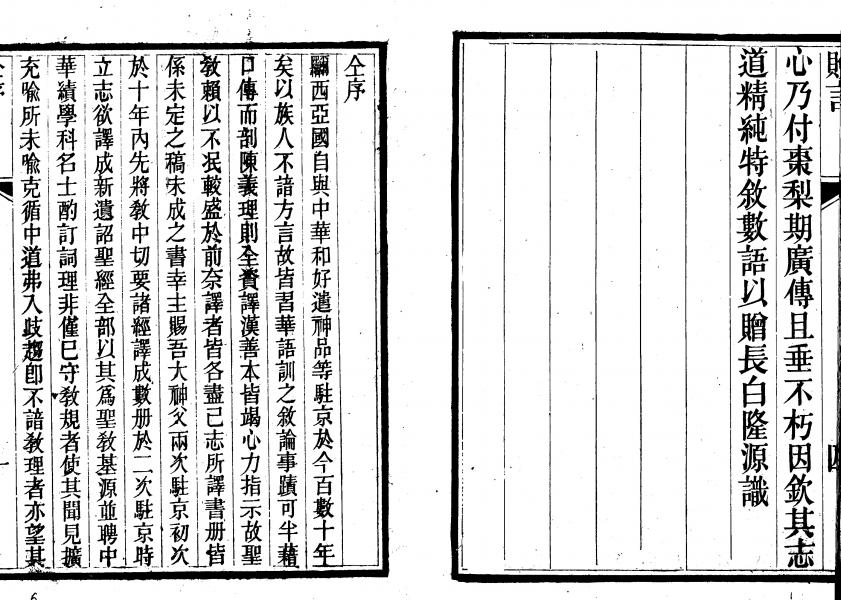 贈言
心乃付棗梨期廣傳且垂不朽因欽其志
道精純特敘數語以贈長白隆源識
四
仝序
俄西亞國自與中華和好遣神品等駐京於今百數十年
矣以族人不諳方言故皆習華語訓之敘論事蹟可半藉
口傳而剖陳義理則全資譯漢善本皆竭心力指示故聖
敎賴以不泯較盛於前奈譯者皆各盡己志所譯書册皆
係未定之稿未成之書幸主賜吾大神父兩次駐京初次
於十年內先將敎中切要諸經譯成數册於二次駐京時
立志欲譯成新遺詔聖經全部以其爲聖敎基源並聘中
華績學科名士酌訂詞理非僅已守敎規者使其聞見擴
充喩所未喩克循中道弗入歧趨卽不諳敎理者亦望其
仝序
一
6